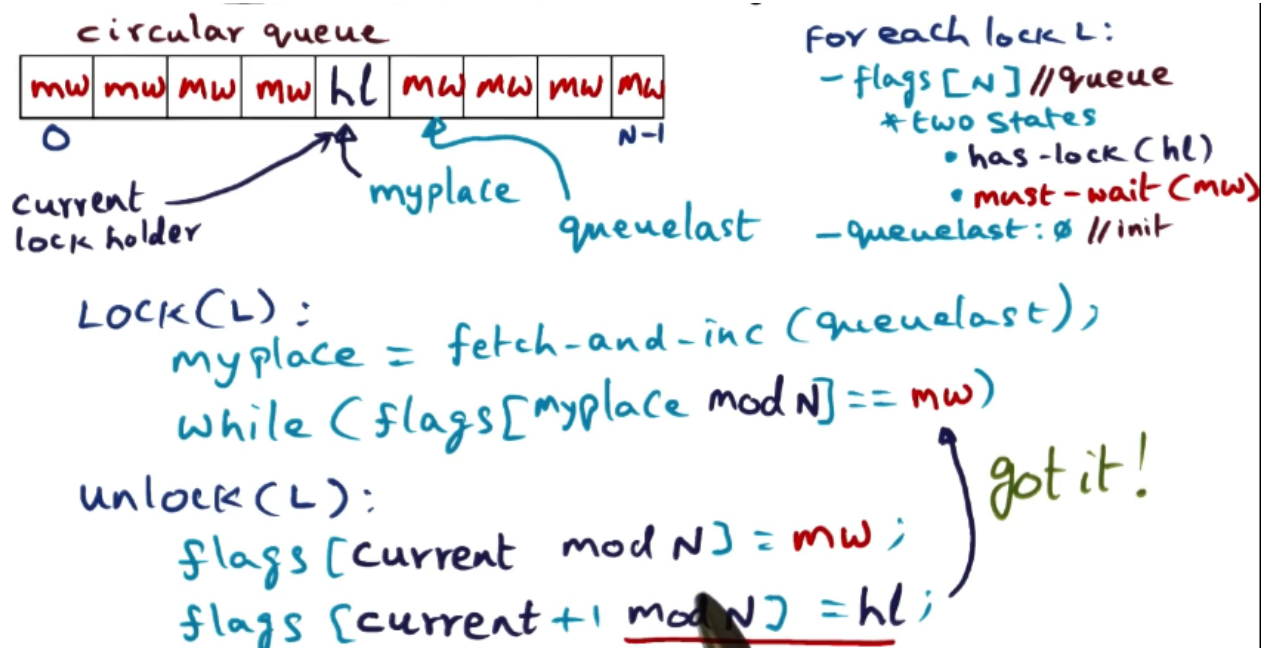 circular queue
mw mw mw mw hl mw mw mw mw
0 N-1
current
lock holder
myplace
queuelast
For each lock L:
- flags [N] //queue
* two states
• has-lock (hl)
• must-wait (mw)
- queuelast: ø //init
Lock(L):
myplace = fetch-and-inc (queuelast);
while (flags[myplace mod N] == mw)
unlock(L):
flags [current mod N] = mw;
flags [current+1 mod N] = hl;
got it!